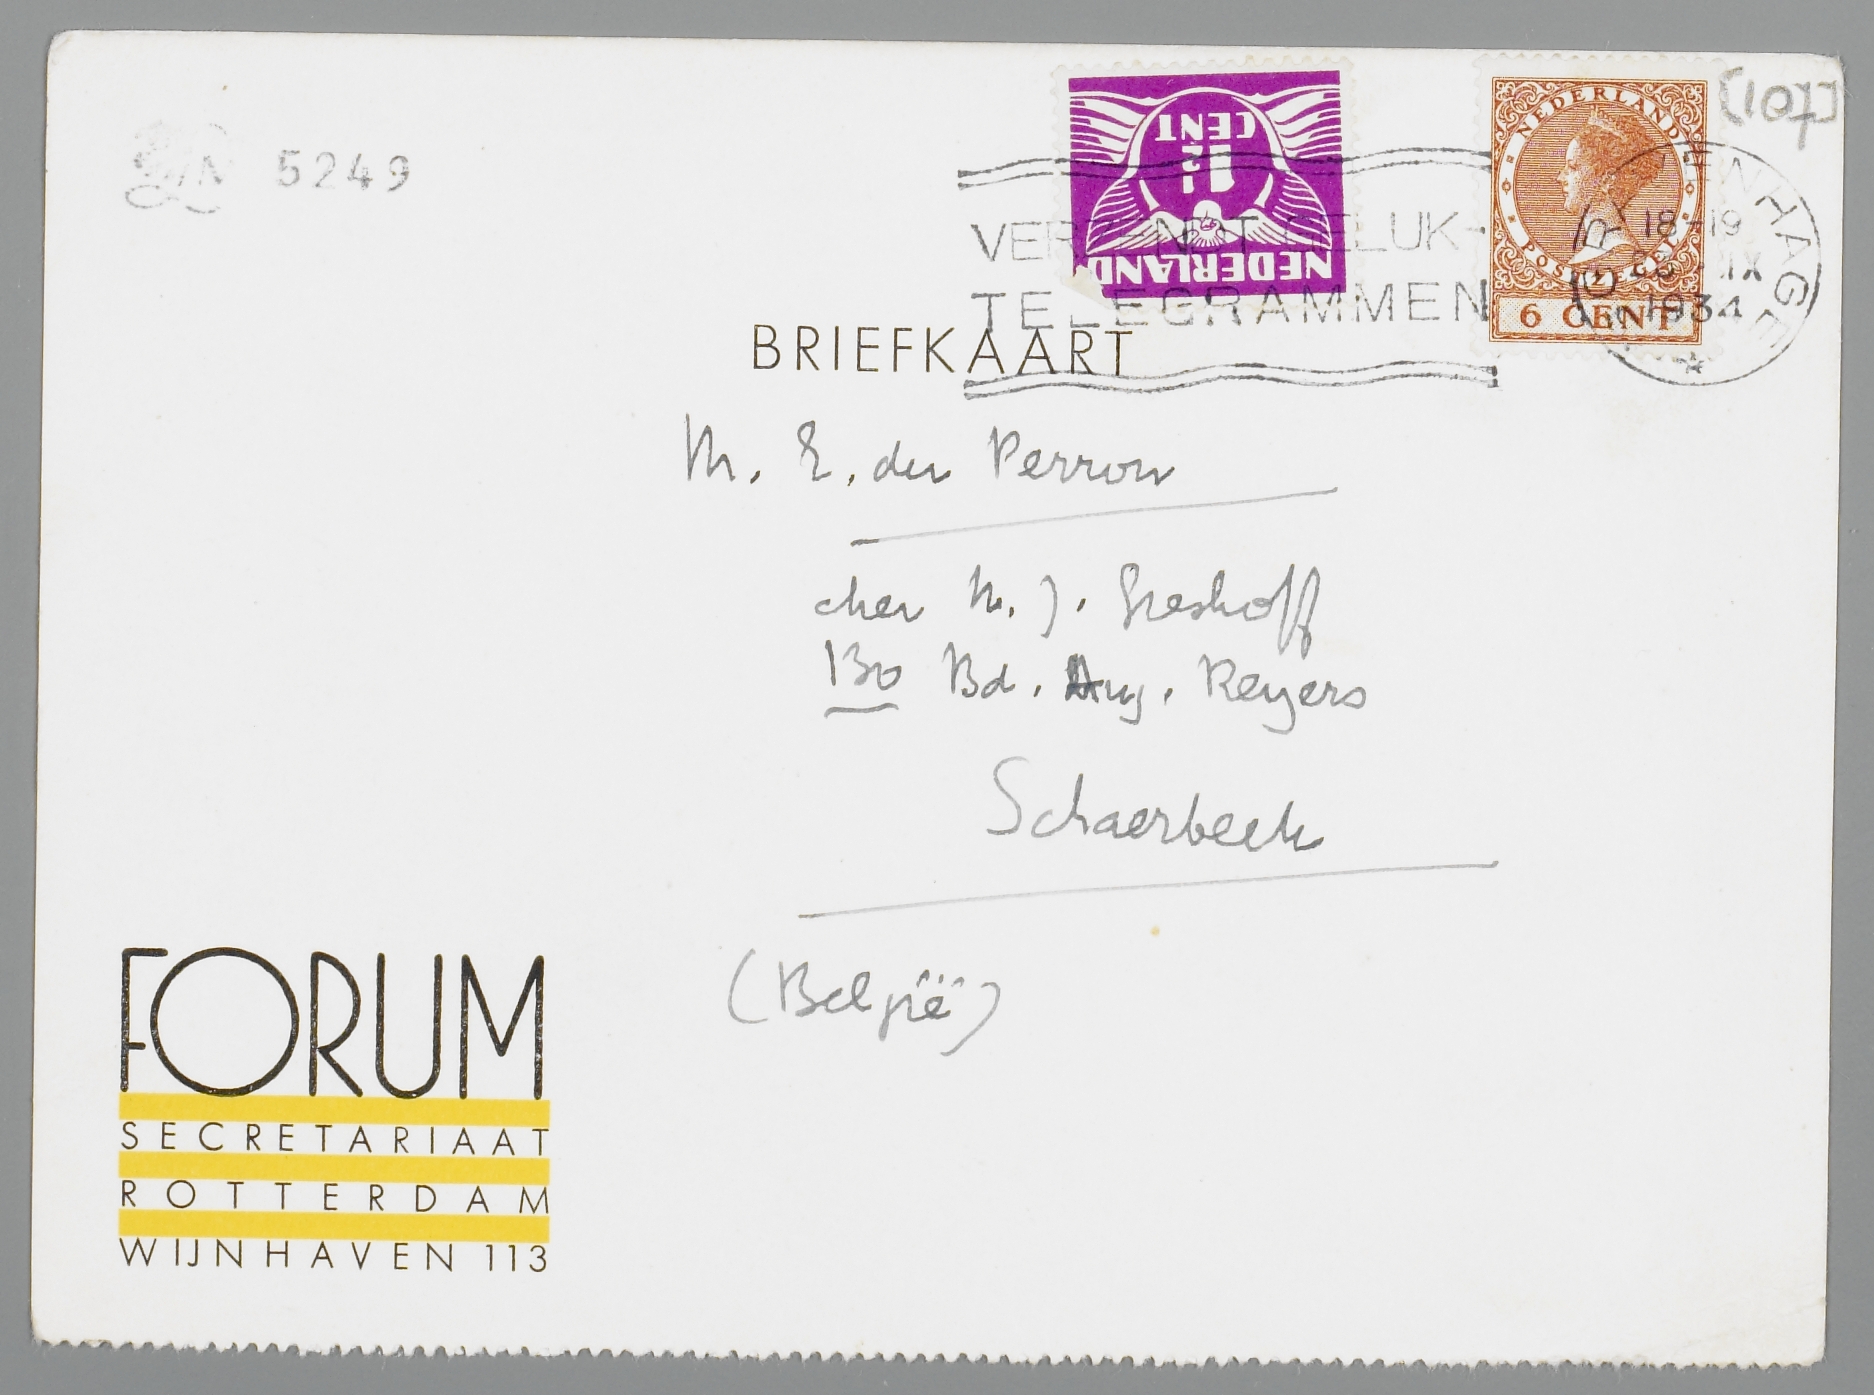 5249
[107]
NEDERLAND
1½
CENT
NEDERLAND
POSTZEGEL
6 CENT
VERZENDT GELUK-
TELEGRAMMEN
'S GRAVENHAGE
18-19
IX
1934
BRIEFKAART
M. E. du Perron
chez M. J. Greshoff
130 Bd. Aug. Reyers
Schaerbeek
(België)
FORUM
SECRETARIAAT
ROTTERDAM
WIJNHAVEN 113